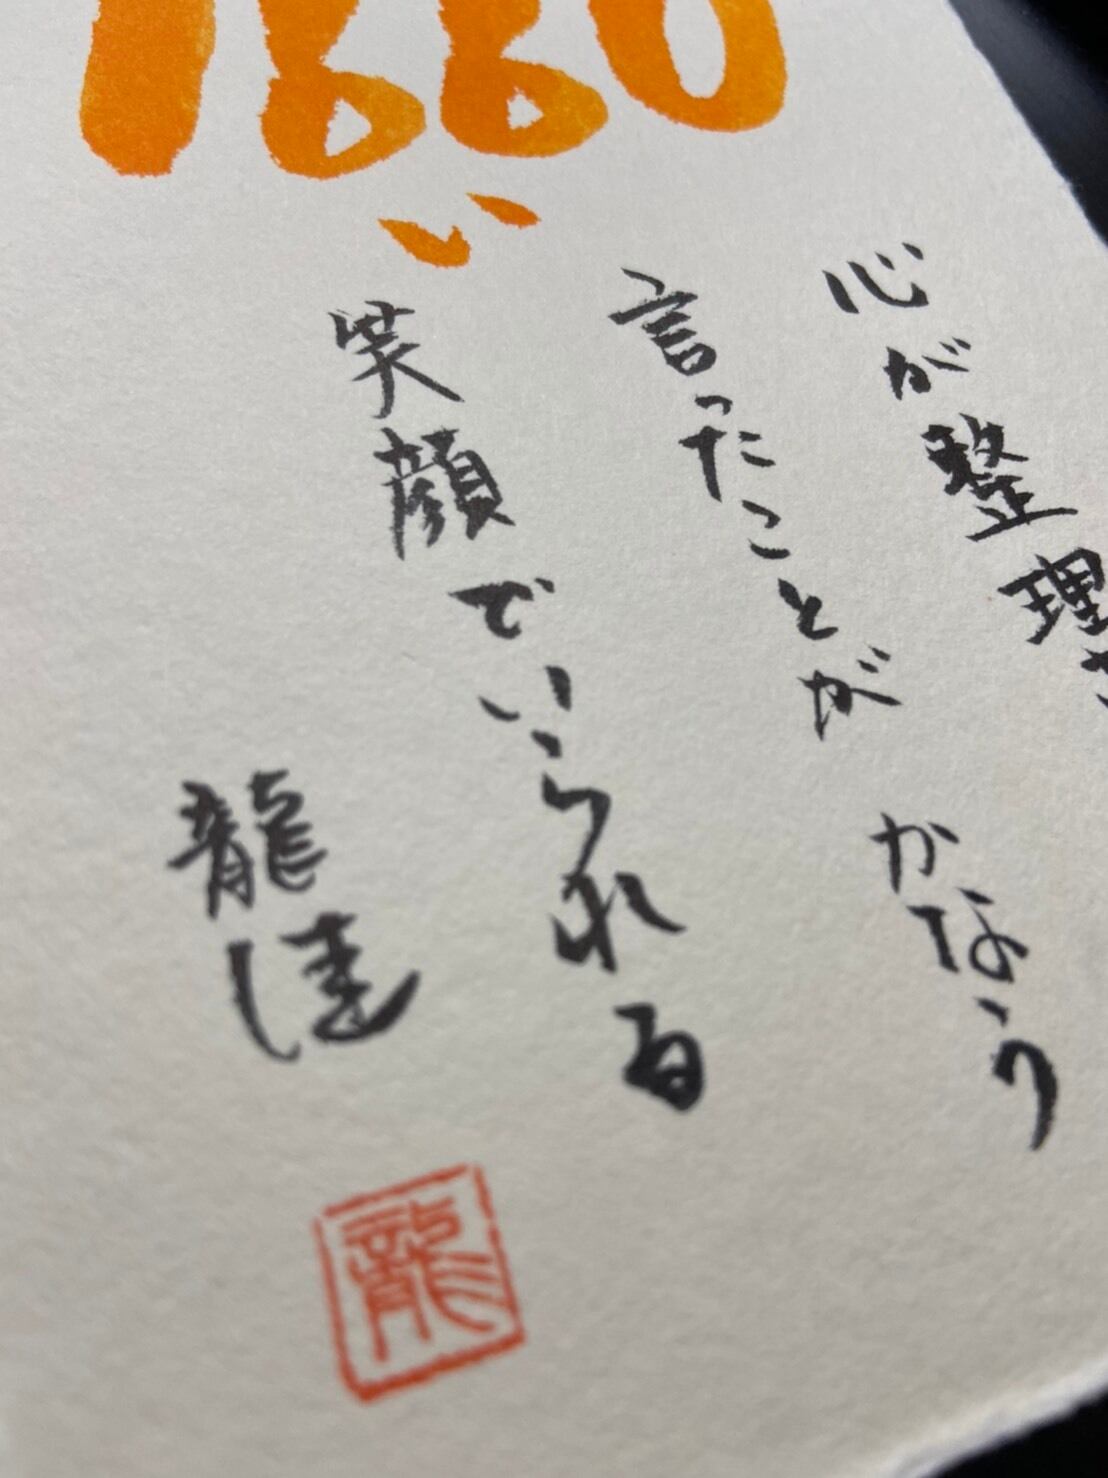 心が整理さ
言ったことが かなう
い
笑顔でいられる
龍達
龍